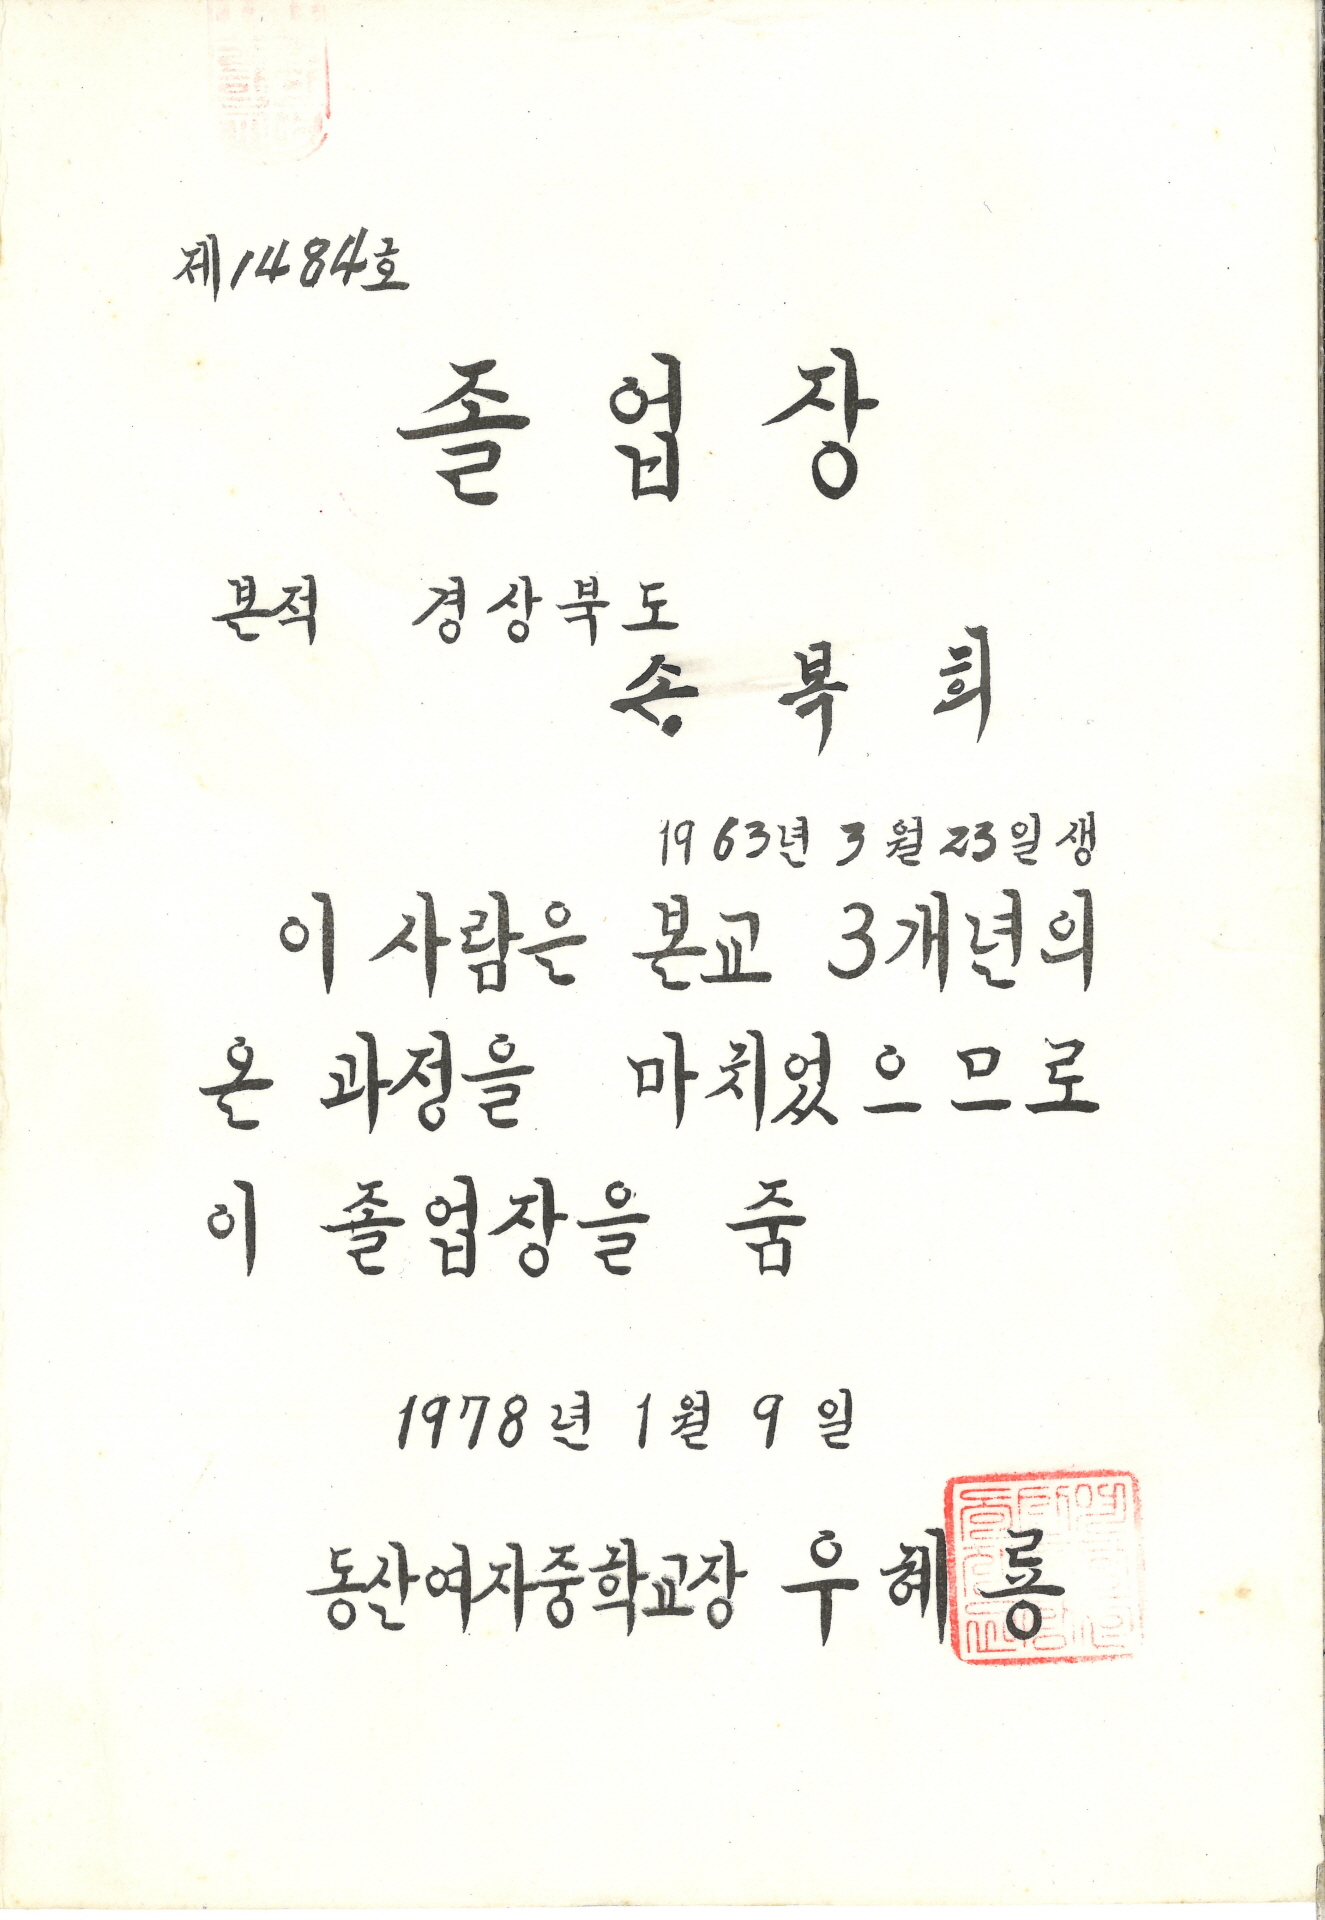 제1484호
졸업장
본적 경상북도
송복희
1963년 3월 23일생
이 사람은 본교 3개년의
온 과정을 마치었으므로
이 졸업장을 줌
1978년 1월 9일
동산여자중학교장 우혜룡